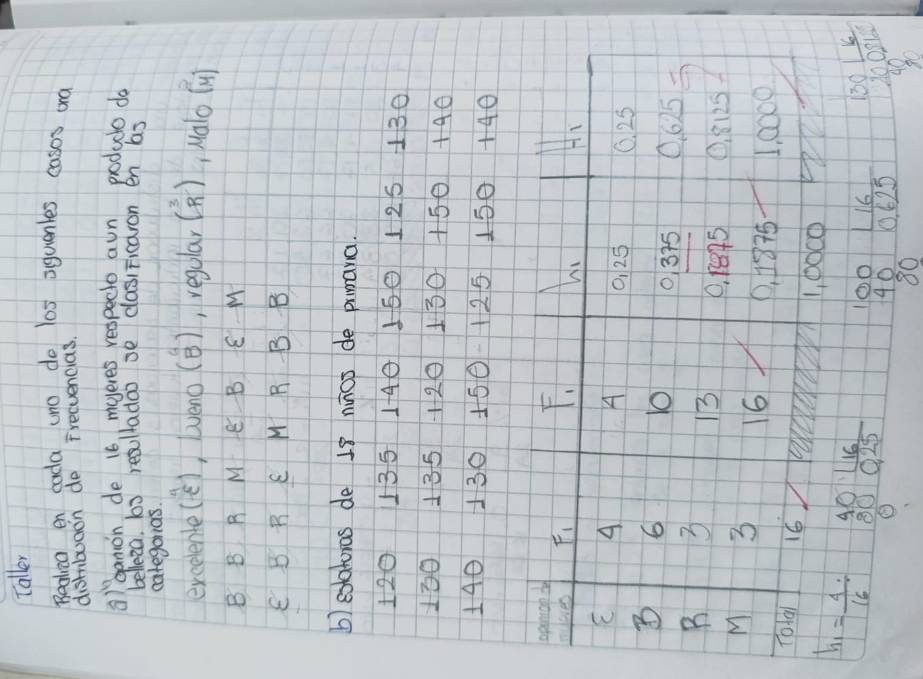 Taller
Realiza en cada uno de los siguientes casos una
distribución de Frecuencias.
a) opinión de 16 mujeres respecto a un producto de
belleza. los resultados se clasificaron en las
categorias.
excelente (E), bueno (B), regular (R), Malo (M)
B B R M E B E M
E B R E M R B B
b) estaturas de 18 niños de primaria.
120 135 140 150 125 130
130 135 120 130 150 140
140 130 150 125 150 140
F1 F1 h1 H1
E 4 4 0,25 0,25
B 6 10 0,375 0,625
R 3 13 0,1875 0,8125
M 3 16 0,1875 1,0000
Total 16 1,0000
h1 = 4/16
40 16
80 0,25
0
100 16
40 0,625
80
130 16
20 0,8125
40
80